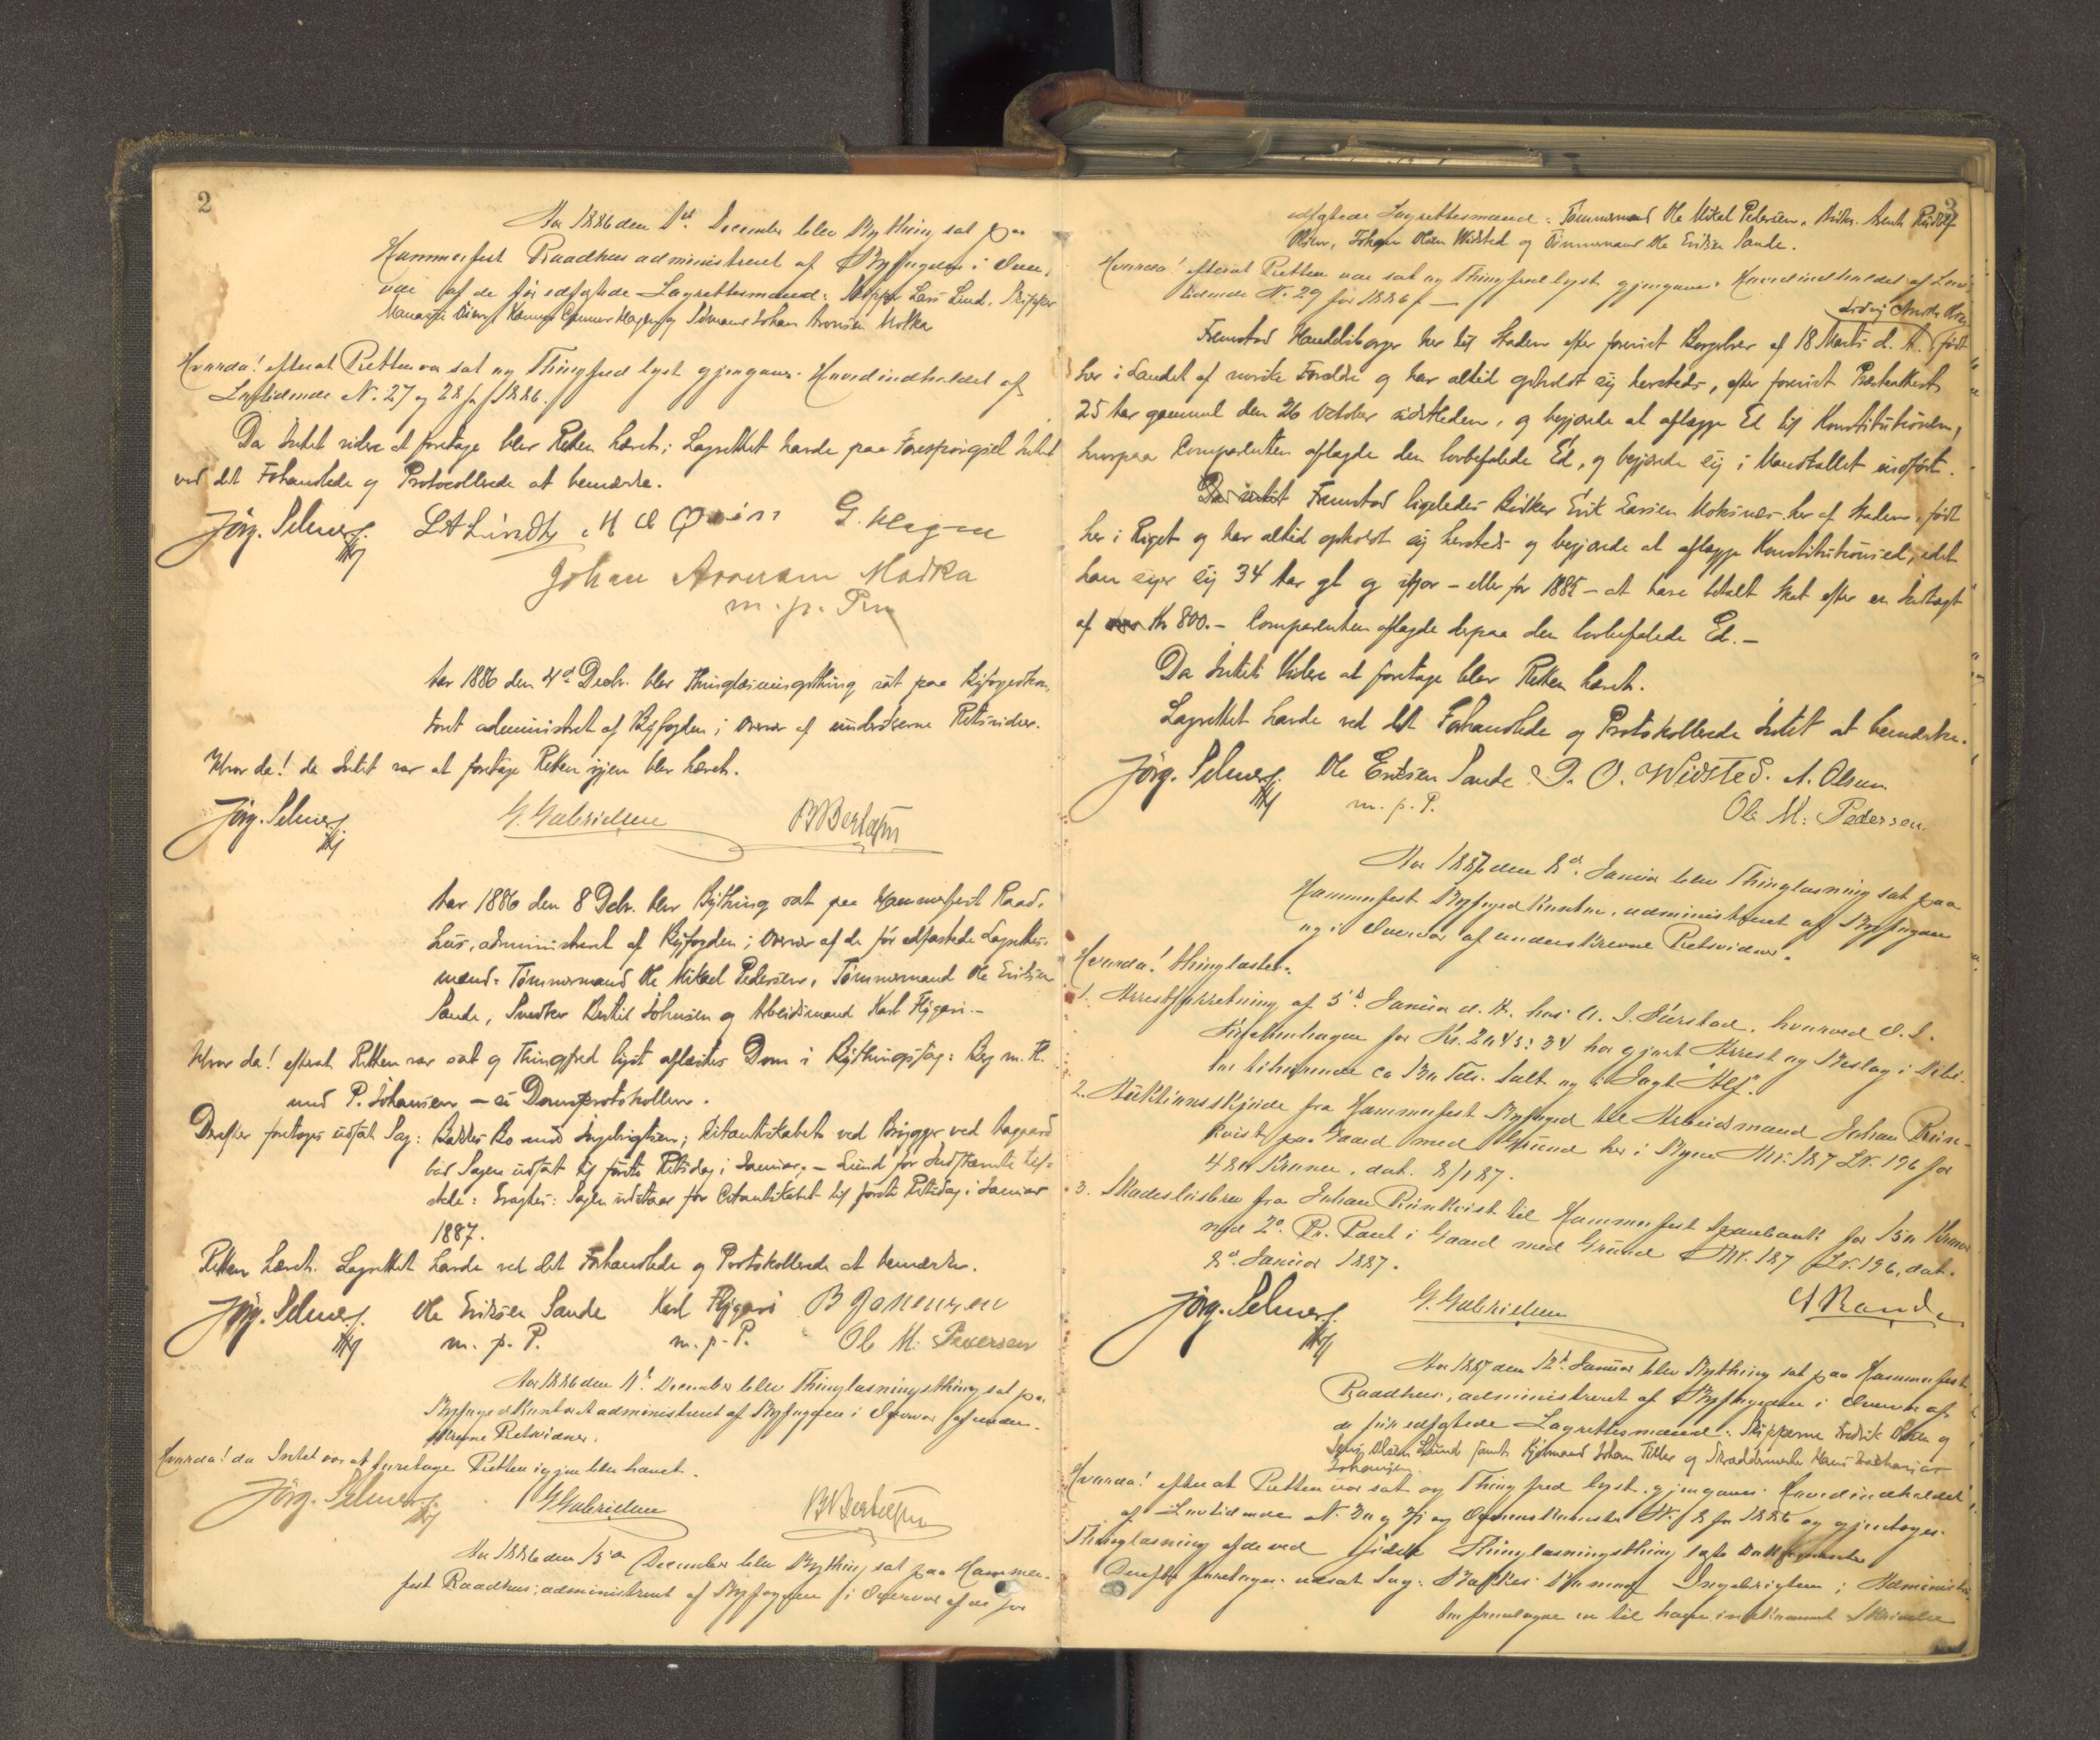 2
Aar 1886 den 1st December blev Bything sat paa
Hammerfest Raadhus administreret af Byfogden i Over-
vær af de før edfæstede Lagrettesmænd: Skipper Lars Lind, Skipper
Gunnar Hagen og Sømand Johan Aronsen Motka
Hvorda! efterat Retten var sat og Thingfred lyst gjengaves Hovedindholdet af
Lovtidende N. 27 og 28 for 1886.
Da Intet videre at foretage blev Retten hævet; Lagrettet havde paa Forespørgsel Intet
ved det Forhandlede og Protocollerede at bemærke.
Jörg. Selmer. L A Lindt, M O G. Hagen
Johan Aronsen Madka
m. p. P.
Aar 1886 den 4d Decbr. blev Thinglæsningsthing sat paa Byfogedkon-
toret administret af Byfogden i Overvær af underskrevne Retsvidner.
Hvor da! da Intet var at foretage Retten igjen blev hævet.
Jörg. Selmer. G. Gabrielsen B Bertheussen
Aar 1886 den 8 Decbr. blev Bything sat paa Hammerfest Raad-
hus, administreret af Byfogden i Overvær af de før edfæstede Lagrettes-
mænd: Tømmermand Ole Mikal Pedersen, Tømmermand Ole Eriksen
Sande, Snedker Bertil Johnsen og Arbeidsmand Karl Flygari.-
Hvor da! efterat Retten var sat og Thingfred lyst aflæstes Dom i Bythingssag: Berg m. H.
mod P. Johansen - se Domsprotokollen.
Derefter foretoges udsat Sag: Bakkes Bo mod Ingebrigtsen; Citantskabet ved Brygger ved Aagaard
bad Sagen udsat til første Retsdag i Januar. - Lund for Indstævnte til-
stede: Eragtes: Sagen udstaar for Citantskabet til første Retsdag i Januar
1887.
Retten hævet. Lagrettet havde ved det Forhandlede og Protokollerede at bemærke.
Jörg. Selmer. Ole Eriksen Sande Karl Flygari B Johnsen
m. p. P. m. p. P. Ole M. Pedersen
Aar 1886 den 11t December blev Thinglæsningsthing sat paa
Byfogedkontoret administreret af Byfogden i Overvær af under-
skrevne Retsvidner.
Hvorda! da Intet var at foretage Retten igjen blev hævet.
Jörg. Selmer. G Gabrielsen B Bertheussen
Aar 1886 den 15de December blev Bything sat paa Hammer-
fest Raadhus; administreret af Byfogden i Overvær af de før
3
edfæstede Lagrettesmænd: Tømmermand Ole Mikal Pedersen, Arent Rudolf
Olsen, Johan Olsen Widsted og Tømmermand Ole Eriksen Sande.
Hvorda! efterat Retten var sat og Thingfred lyst gjengaves Hovedindholdet af Lov-
tidende N. 29 for 1886.-
Ludvig
Fremstod Handelsborger her til Staden efter forevist Borgebrev af 18 Marts d. A. født
her i Landet af norske Forældre og har altid opholdt sig hersteds, efter forevist Præsteattest
25 Aar gammel den 26 October sidstleden, og begjærede at aflægge Ed til Konstitutionen,
hvorpaa Comparenten aflagde den lovbefalede Ed, og begjærede sig i Mandtallet indført.
Da intet Fremstod ligeledes Bødker Erik Larsen Moksnæs her af Staden, født
her i Riget og har altid opholdt sig hersteds og begjærede at aflægge Konstitutionsed, idet
han siger sig 34 Aar gl og ifjor - eller for 1885 - at have betalt Skat efter en Indtægt
af Kr 800.- Comparenten aflagde derpaa den lovbefalede Ed.-
Da Intet Videre at foretage blev Retten hævet.
Lagrettet havde ved det Forhandlede og Protokollerede Intet at bemærke.
Jörg. Selmer. Ole Eriksen Sande J. O. Widsted. A. Olsen
m. p. P. Ole M. Pedersen
Aar 1887 den 8d Januar blev Thinglæsning sat paa
Hammerfest Byfogedkontor, administreret af Byfogden
og i Overvær af underskrevne Retsvidner.
Hvorda! thinglæstes:
1. Arrestforretning af 5t Januar d. A. hos A. J. hvorved O. J.
for Kr. 2043:34 har gjort Arrest og Beslag i Debi-
tor tilhørende ca Tdr. Salt og i Jagt "Alf".
2. Auktionsskjøde fra Hammerfest Byfoged til Arbeidsmand Johan Rein-
kvist paa Gaard med Grund her i Byen Mr. 187 Lr. 196 for
480 Kroner, dat. 8/1 87.
3. Skadesløsbrev fra Johan Reinkvist til Hammerfest Sparebank for 150 Kroner
med 2d Pr. Pant i Gaard med Grund Mr. 187 Lr. 196, dat.
8d Januar 1887.
Jörg. Selmer. G. Gabrielsen A Rand
Aar 1887 den 12t Januar blev Bything sat paa Hammerfest
Raadhus, administreret af Byfogden i Overvær af
de før edfæstede Lagrettesmænd: Skipperne Fredrik Olsen og
Jens Olsen Lund samt Kjøbmand Johan Tiller og Skræddermester Hans Zacharias
Johansen.
Hvorda! efterat Retten var sat og Thingfred lyst gjengaves Hovedindholdet
af Lovtidende N. 30 og 31 og N. 8 for 1886 og gjentoges
Thinglæsning af de ved sidste Thinglæsningsthing læste Dokumenter
Derefter foretoges udsat Sag: Bakkes Bo mod Ingebrigtsen; Administra-
tor fremlagde en til ham Skrivelse